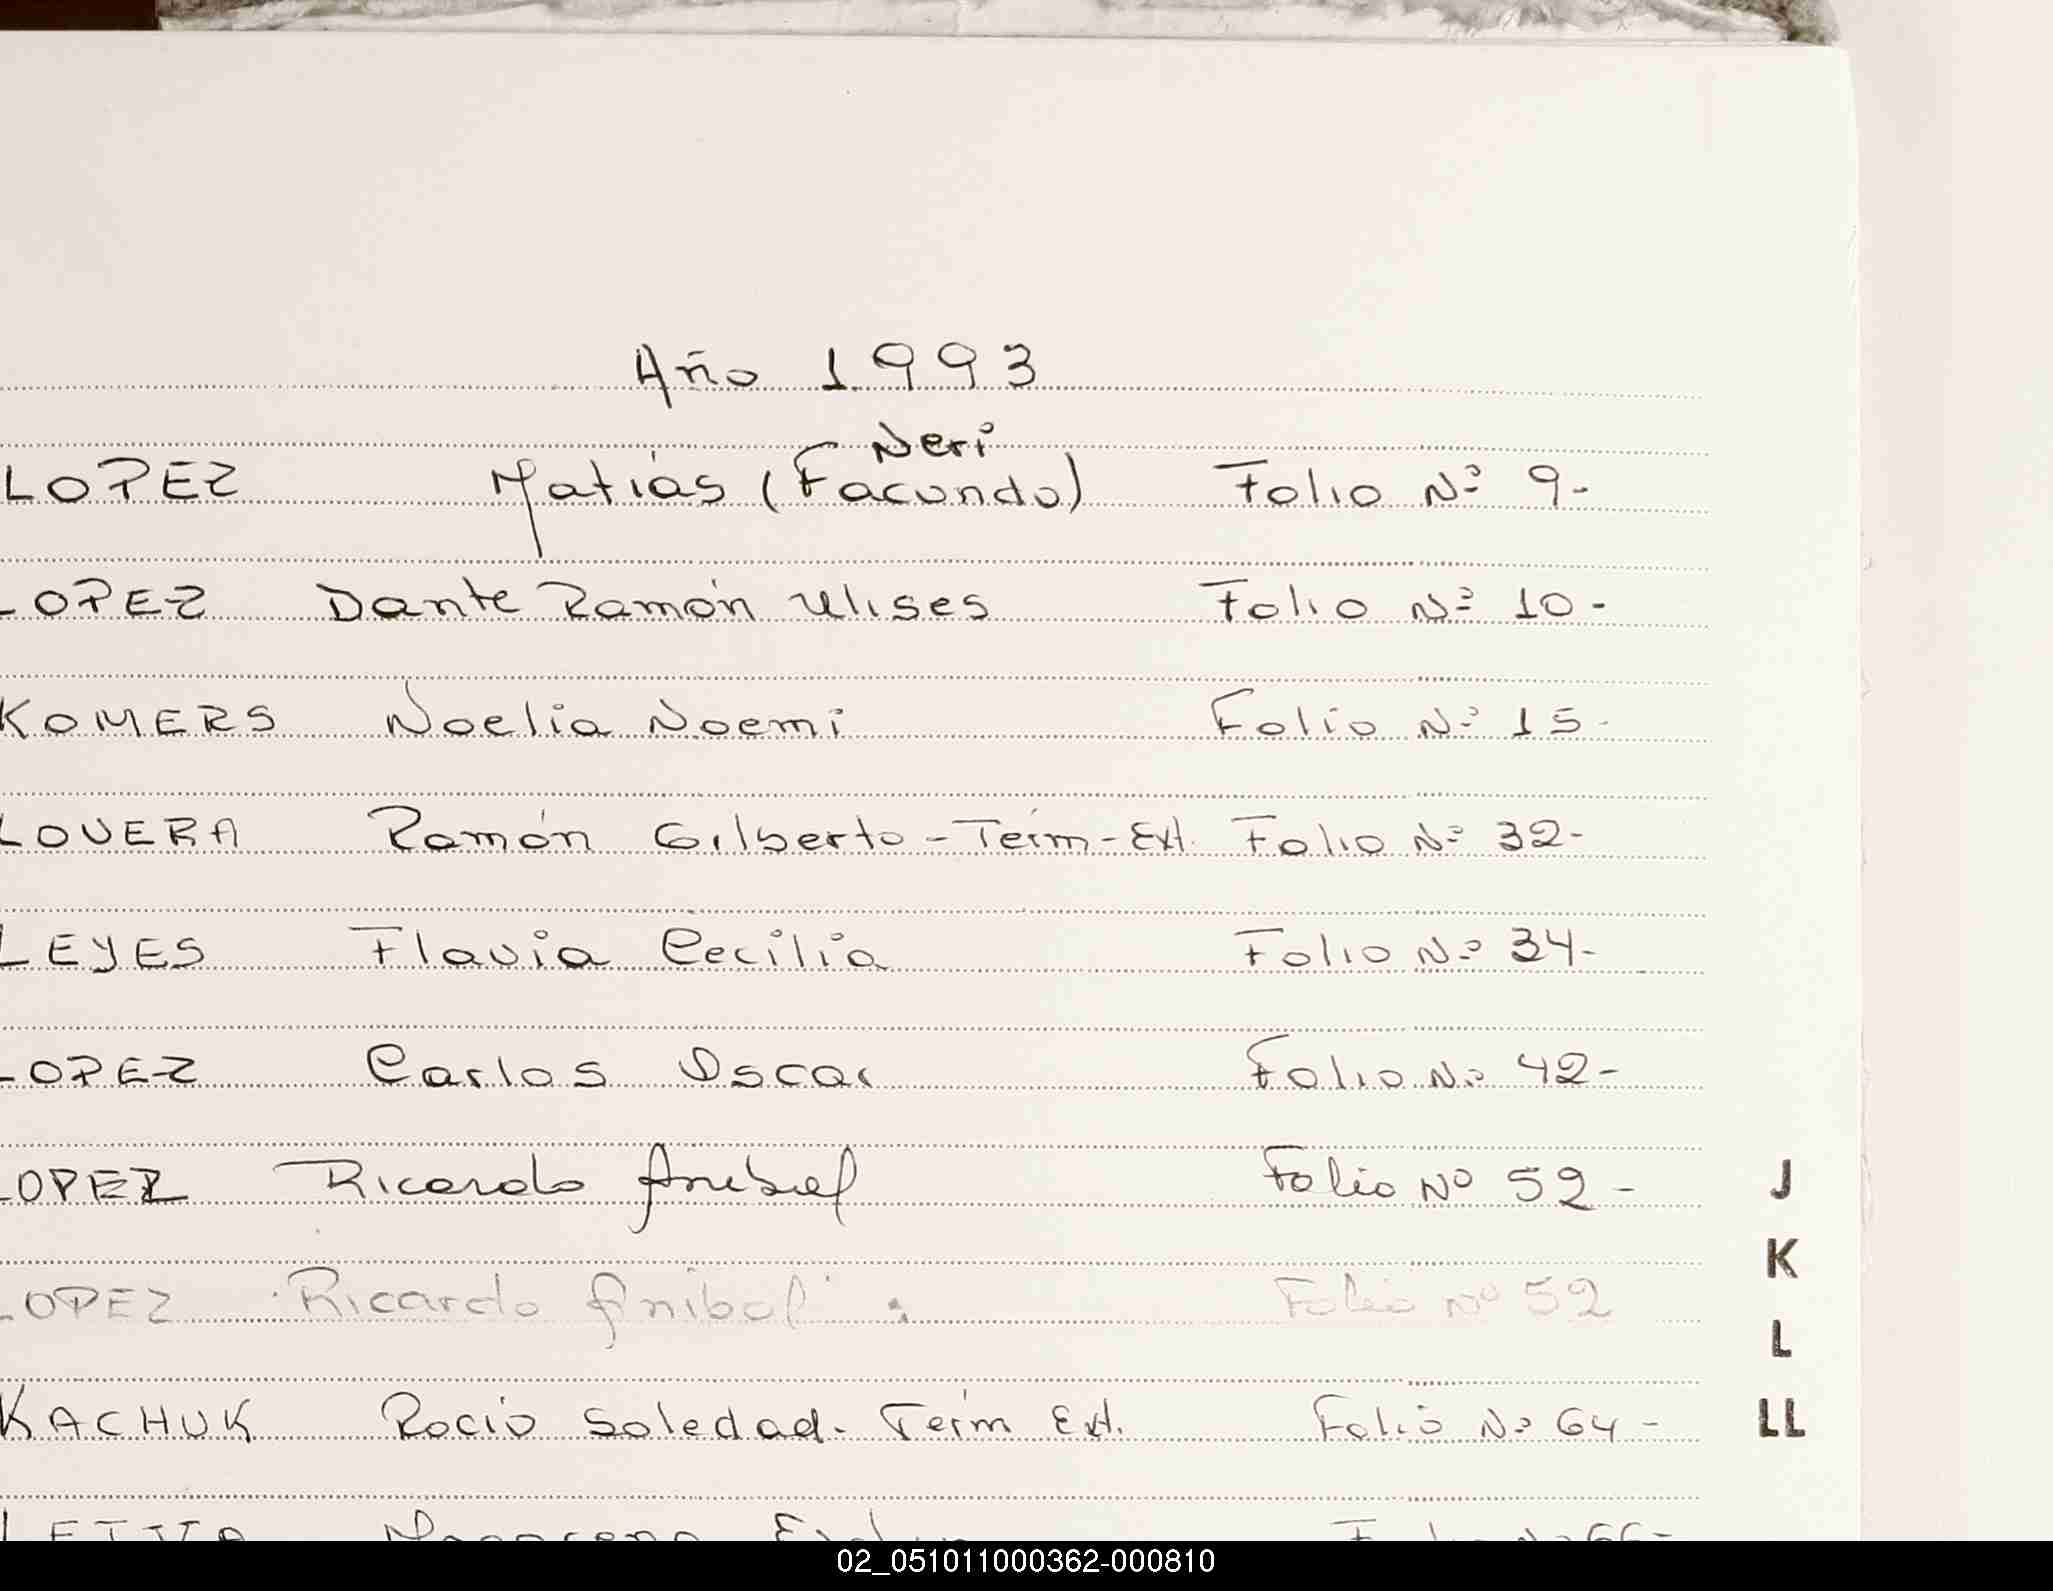 Año 1993
Neri
LOPEZ Matías (Facundo) Folio Nº 9-
LOPEZ Dante Ramón Ulises Folio Nº 10-
KOMERS Noelia Noemi Folio Nº 15-
LOVERA Ramón Gilberto - Teím - Ext. Folio Nº 32-
LEYES Flavia Cecilia Folio Nº 34-
LOPEZ Carlos Oscar Folio Nº 42-
LOPEZ Ricardo Anibal Folio Nº 52-
J
K
LOPEZ Ricardo Anibal Folio Nº 52
L
KACHUK Rocío Soledad. Teím Ext. Folio Nº 64-
LL
Folio Nº 66-
02_051011000362-000810